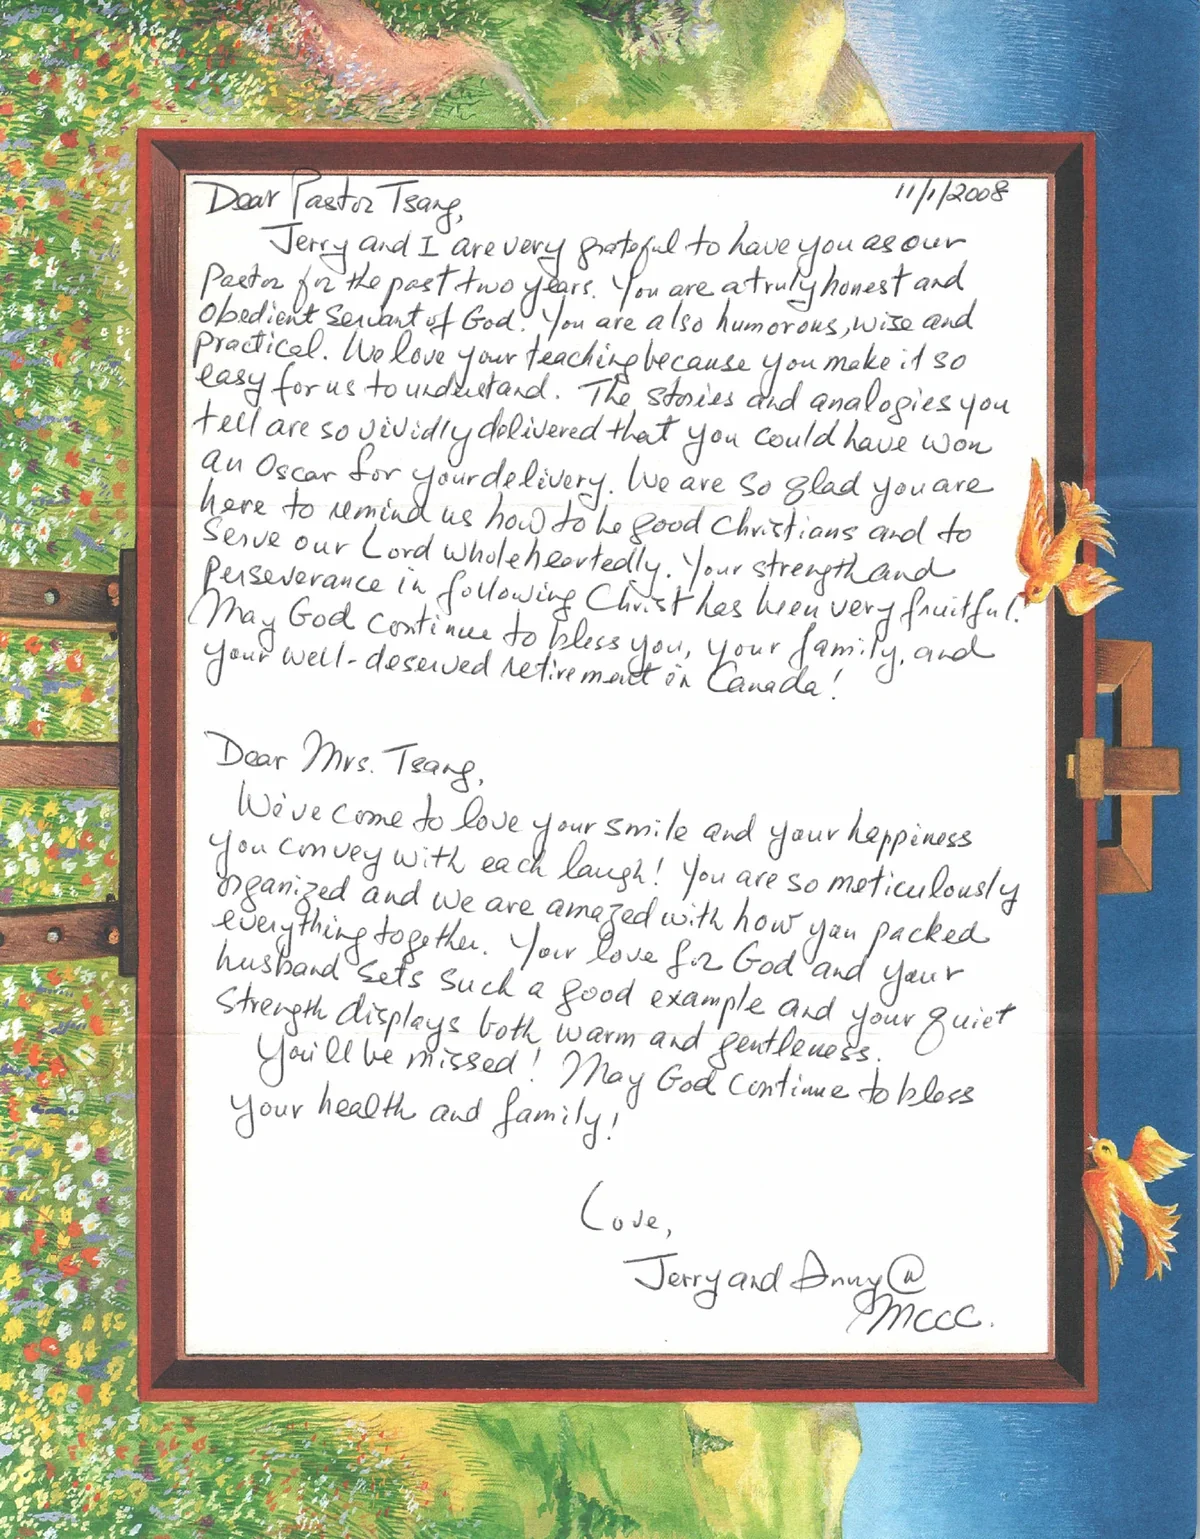 11/1/2008
Dear Pastor Tsang,
Jerry and I are very grateful to have you as our
Pastor for the past two years. You are a truly honest and
Obedient Servant of God. You are also humorous, wise and
practical. We love your teaching because you make it so
easy for us to understand. The stories and analogies you
tell are so vividly delivered that you could have won
an Oscar for your delivery. We are so glad you are
here to remind us how to be good Christians and to
Serve our Lord wholeheartedly. Your strength and
perseverance in following Christ has been very fruitful!
May God continue to bless you, your family, and
your well-deserved retirement in Canada!
Dear Mrs. Tsang,
We've come to love your smile and your happiness
you convey with each laugh! You are so meticulously
organized and we are amazed with how you packed
everything together. Your love for God and your
husband sets such a good example and your quiet
strength displays both warm and gentleness.
You'll be missed! May God continue to bless
your health and family!
Love,
Jerry and Anny @
MCCC.